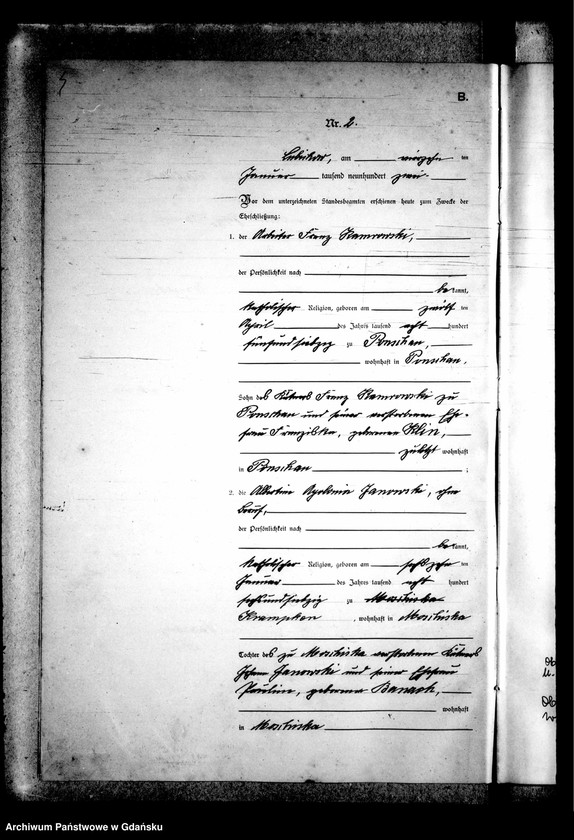 B.
Nr. 2.
Lubichow, am vierzehn ten
Januar tausend neunhundert zwei.
Vor dem unterzeichneten Standesbeamten erschienen heute zum Zwecke der
Eheschließung:
1. der Arbeiter Franz Kamrowski,
der Persönlichkeit nach
be kannt,
katholischer Religion, geboren am zwölf ten
April des Jahres tausend acht hundert
fünfundsiebzig zu Ponschau,
wohnhaft in Ponschau.
Sohn des Käthners Franz Kamrowski zu
Ponschau und seiner verstorbenen Ehe-
frau Franziska, geborenen Klin,
zuletzt wohnhaft
in Ponschau ;
2. die Albertine Apolonia Janowski, ohne
Beruf,
der Persönlichkeit nach
be kannt,
katholischer Religion, geboren am sechszehn ten
Januar des Jahres tausend acht hundert
sechsundsiebzig zu Mositiska
Krampken, wohnhaft in Mositiska
Tochter des zu Mositiska verstorbenen Käthners
Johann Janowski und seiner Ehefrau
Pauline, geborenen Banach,
wohnhaft
in Mositiska
Archiwum Państwowe w Gdańsku